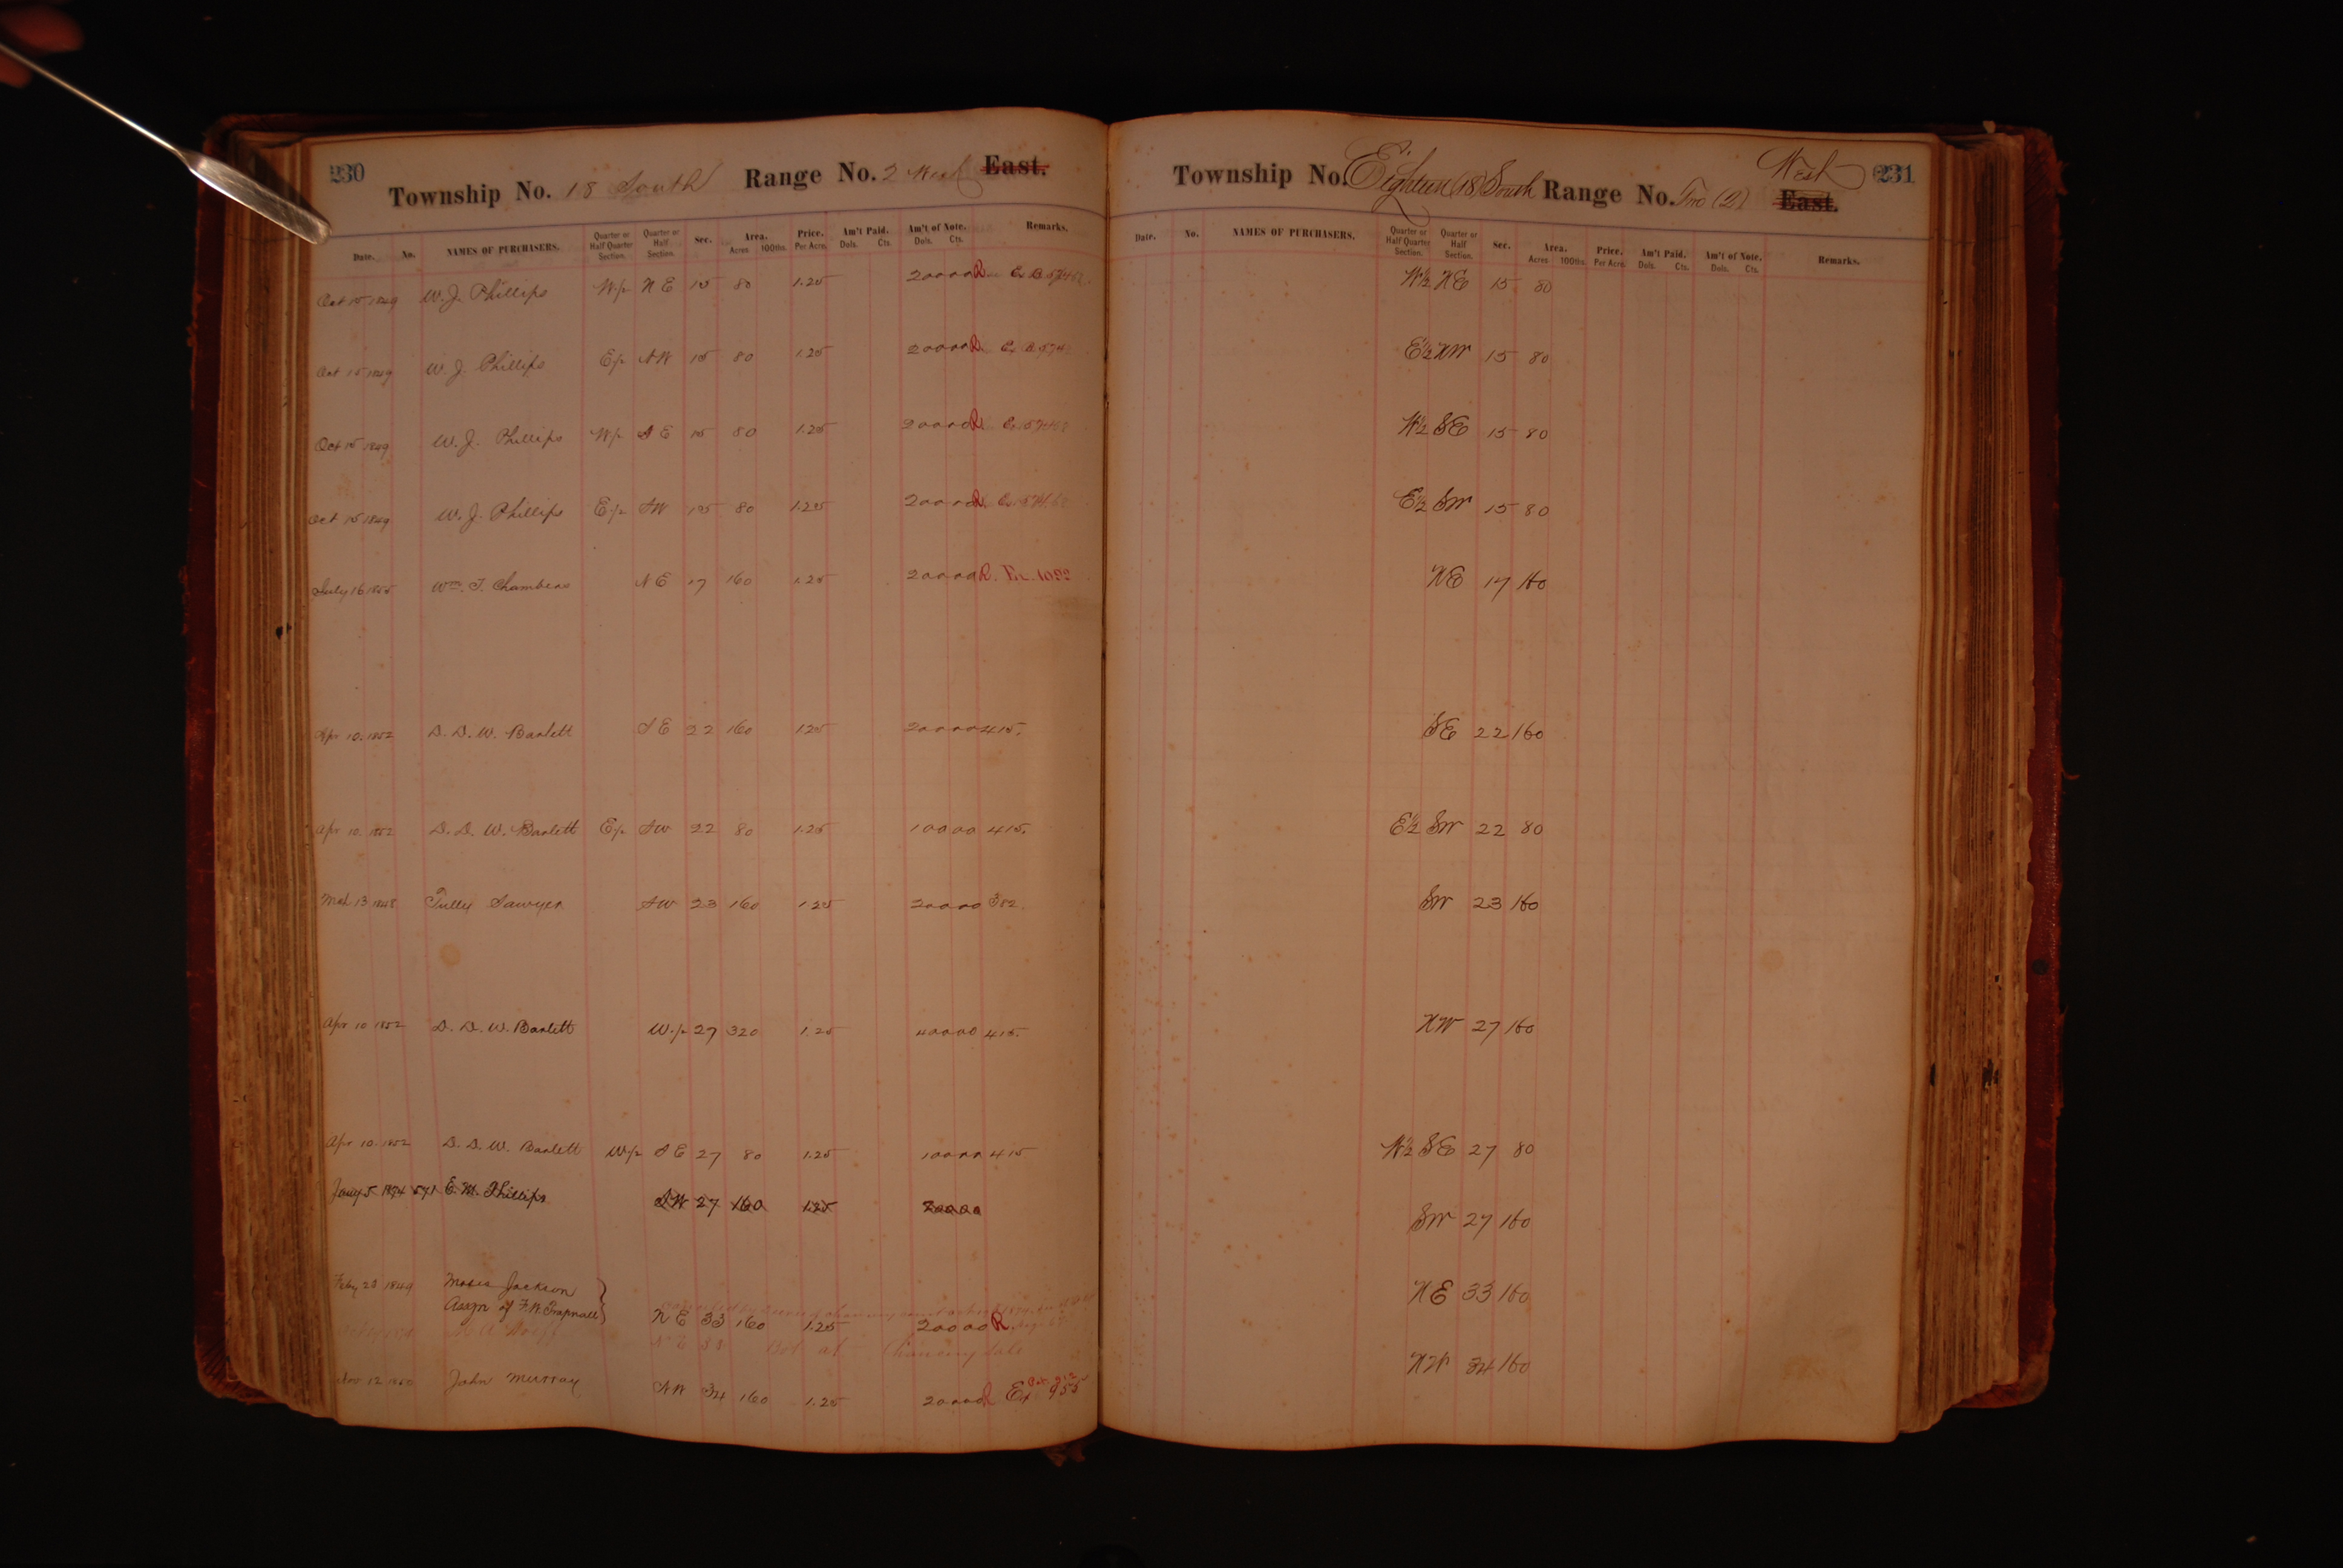 230
Township No. 18 South Range No. 2 West East.
Date. No. NAMES OF PURCHASERS. Quarter or Half Quarter Section. Quarter or Half Section. Sec. Area. Acres 100ths. Price. Per Acre. Am't Paid. Dols. Cts. Am't of Note. Dols. Cts. Remarks.
Oct 15 1849 W. J. Phillips W/2 N E 15 80 1.25 200 00 R.
Oct 15 1849 W. J. Phillips E/2 N W 15 80 1.25 200 00 R.
Oct 15 1849 W. J. Phillips W/2 S E 15 80 1.25 200 00 R.
Oct 15 1849 W. J. Phillips E/2 S W 15 80 1.25 200 00 R.
July 16 1855 Wm. T. Chambers N E 17 160 1.25 200 00 R. Ex. 1092
Apr 10. 1852 D. D. W. Barlett S E 22 160 1.25 200 00 415.
Apr 10. 1852 D. D. W. Barlett E/2 S W 22 80 1.25 100 00 415.
Mch 13 1848 Tully Sawyer S W 23 160 1 25 200 00 382.
Apr 10 1852 D. D. W. Barlett W/2 27 320 1.25 400 00 415.
Apr 10. 1852 D. D. W. Barlett W/2 S E 27 80 1.25 100 00 415
Jany 5 1874 571 E. M. Phillips S W 27 160 1.25 200 00
Feby 23 1849 Moses Jackson
Assgn of F. W. Trapnall N E 33 160 1.25 200 00 R.
N E 33 Bot at Chancery Sale
Nov 12 1850 John Murray N W 34 160 1.25 200 00 R Ex 955
231
Township No. Eighteen (18) South Range No. Two (2) West East.
Date. No. NAMES OF PURCHASERS. Quarter or Half Quarter Section. Quarter or Half Section. Sec. Area. Acres 100ths. Price. Per Acre. Am't Paid. Dols. Cts. Am't of Note. Dols. Cts. Remarks.
W½ NE 15 80
E½ NW 15 80
W½ SE 15 80
E½ SW 15 80
NE 17 160
SE 22 160
E½ SW 22 80
SW 23 160
NW 27 160
W½ SE 27 80
SW 27 160
NE 33 160
NW 34 160